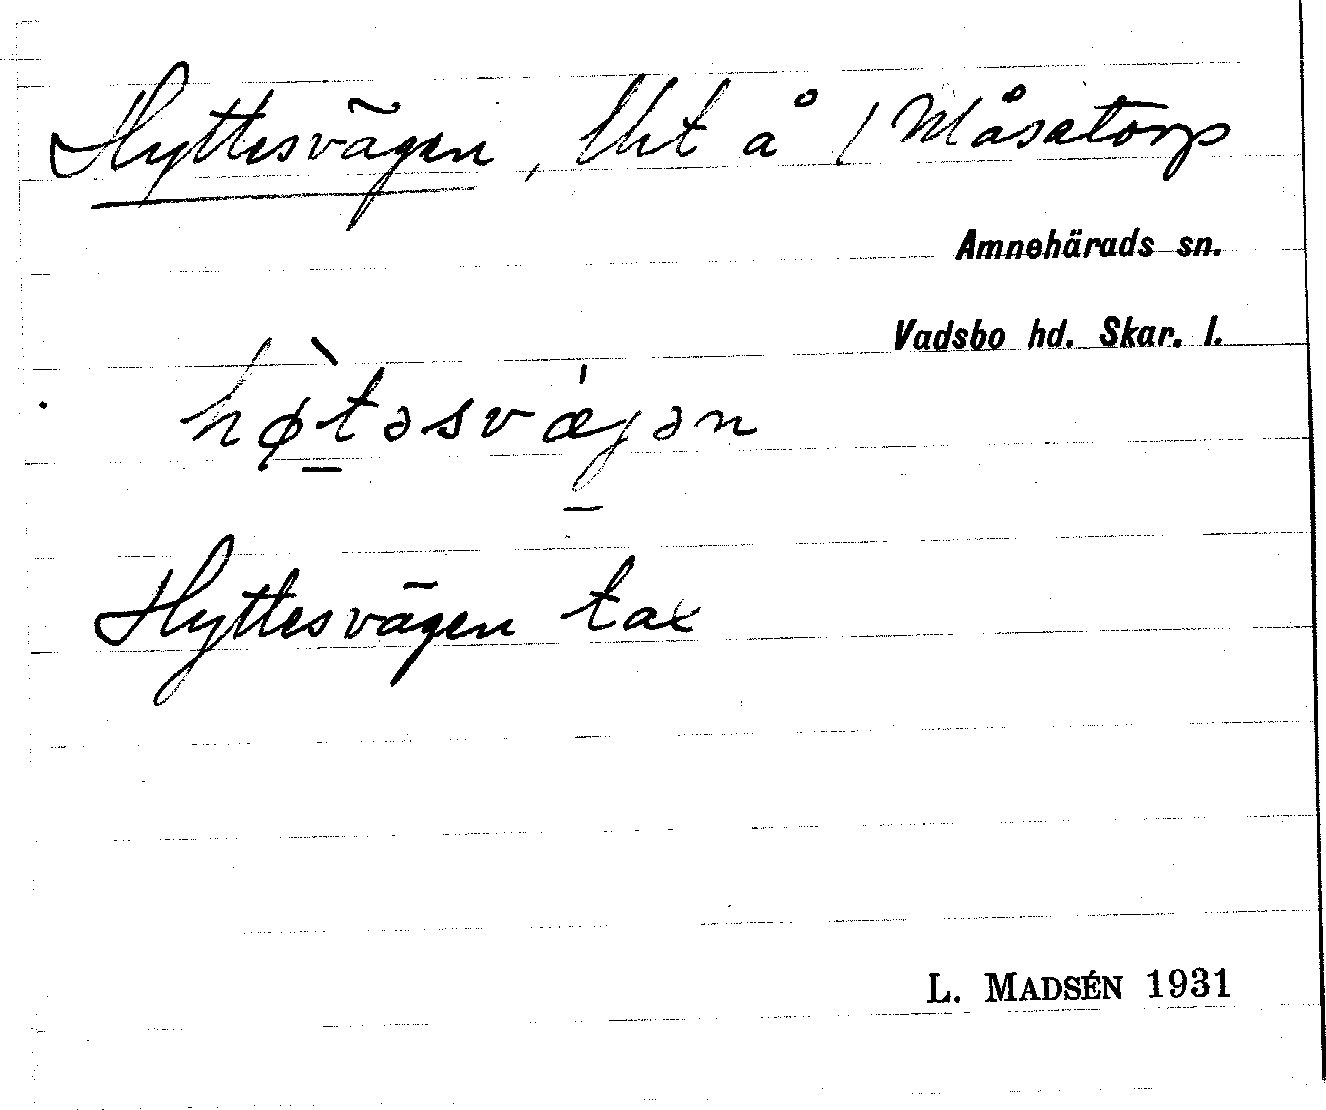 Hyttesvägen, lht å / Måsatorp
Amnehärads sn.
Vadsbo hd. Skar. l.
hø̀təsvæ̀jən
Hyttesvägen tax
L. MADSÉN 1931